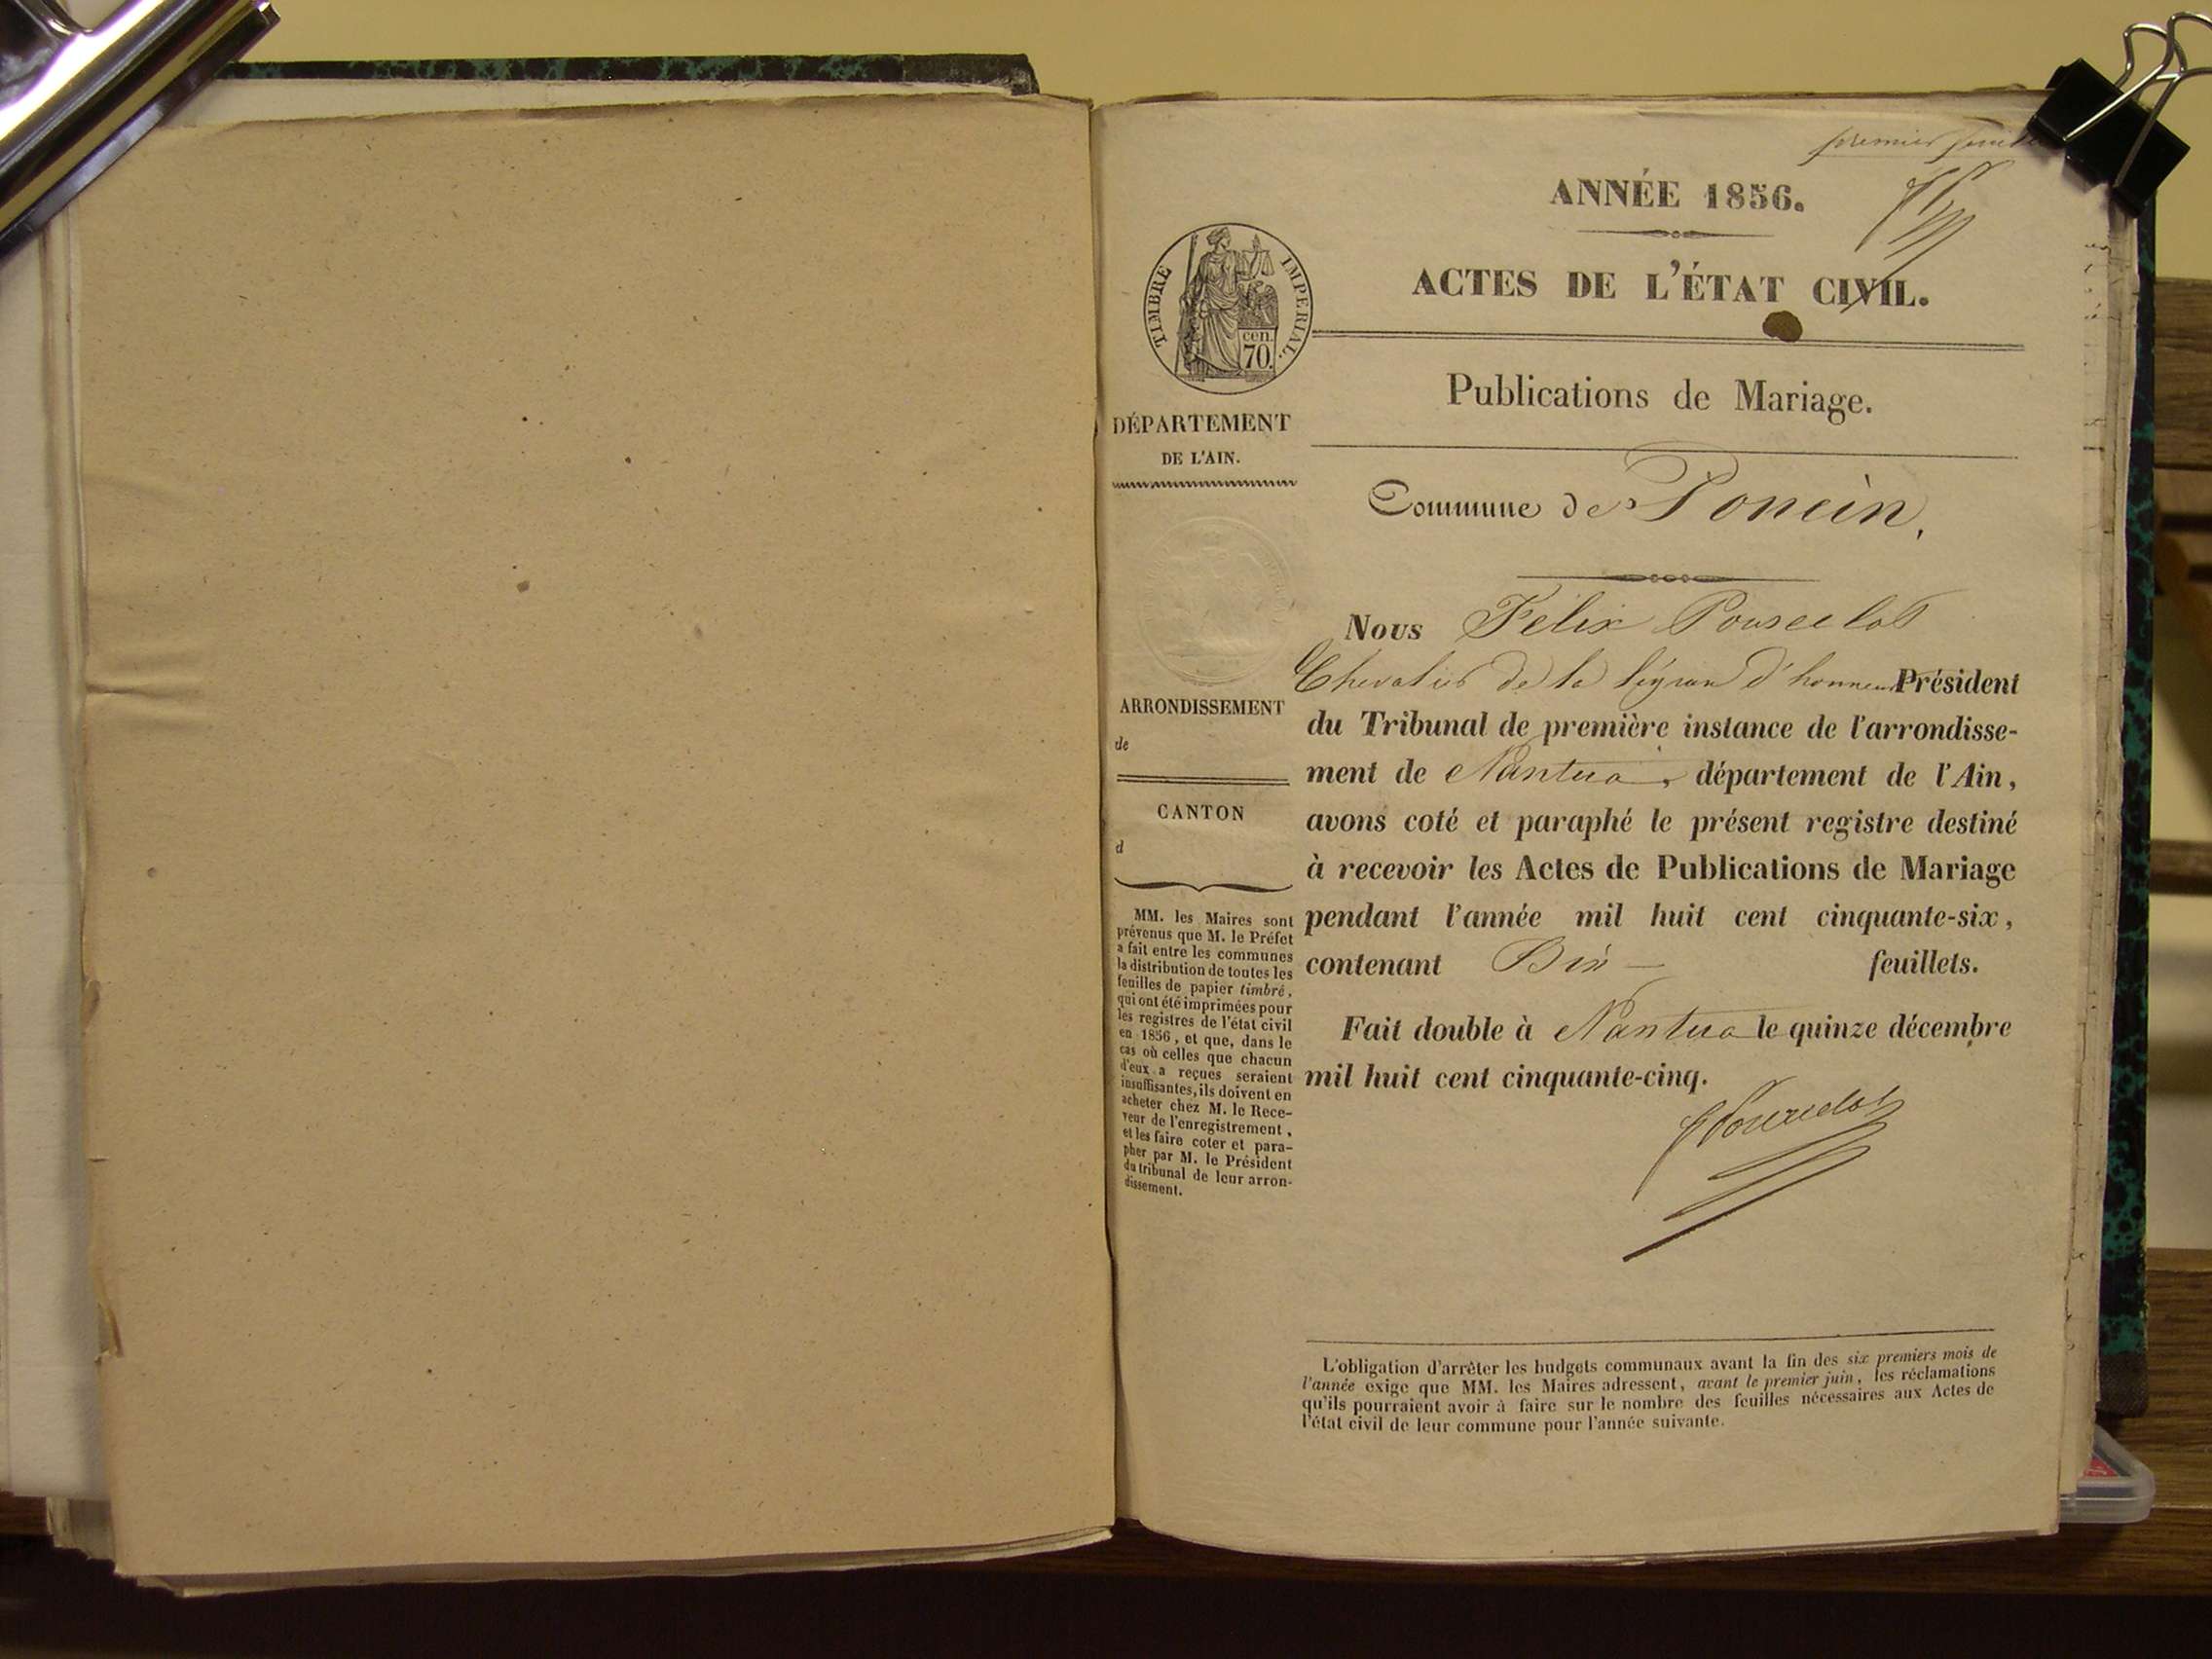 premier feuillet
ANNÉE 1856.
ACTES DE L'ÉTAT CIVIL.
TIMBRE IMPERIAL.
cen.
70.
Publications de Mariage.
DÉPARTEMENT
DE L'AIN.
Commune de Poncin,
ARRONDISSEMENT
de
CANTON
d
MM. les Maires sont
prévenus que M. le Préfet
a fait entre les communes
la distribution de toutes les
feuilles de papier timbré,
qui ont été imprimées pour
les registres de l'état civil
en 1856, et que, dans le
cas où celles que chacun
d'eux a reçues seraient
insuffisantes, ils doivent en
acheter chez M. le Rece-
veur de l'enregistrement,
et les faire coter et para-
pher par M. le Président
du tribunal de leur arron-
dissement.
Nous Félix
Chevalier de la légion d'honneur Président
du Tribunal de première instance de l'arrondisse-
ment de Nantua, département de l'Ain,
avons coté et paraphé le présent registre destiné
à recevoir les Actes de Publications de Mariage
pendant l'année mil huit cent cinquante-six,
contenant Dix feuillets.
Fait double à Nantua le quinze décembre
mil huit cent cinquante-cinq.
L'obligation d'arrêter les budgets communaux avant la fin des six premiers mois de
l'année exige que MM. les Maires adressent, avant le premier juin, les réclamations
qu'ils pourraient avoir à faire sur le nombre des feuilles nécessaires aux Actes de
l'état civil de leur commune pour l'année suivante.